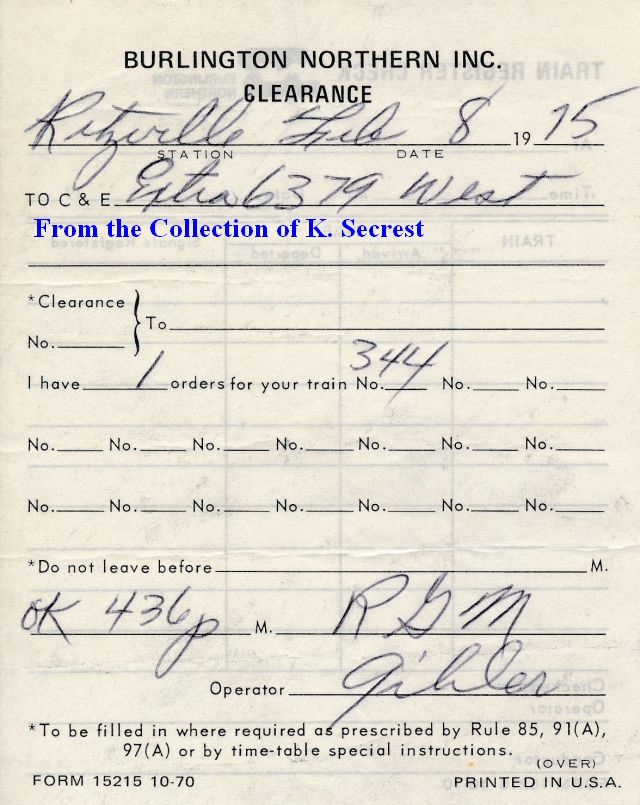 BURLINGTON NORTHERN INC.
CLEARANCE
Ritzville Feb 8 19 75
STATION DATE
TO C & E Extra 6379 West
From the Collection of K. Secrest
*Clearance
No. } To
I have 1 orders for your train No. 344 No. No.
No. No. No. No. No. No. No.
No. No. No. No. No. No. No.
*Do not leave before M.
OK 436p M. RGM
Operator
*To be filled in where required as prescribed by Rule 85, 91(A),
97(A) or by time-table special instructions.
(OVER)
FORM 15215 10-70 PRINTED IN U.S.A.